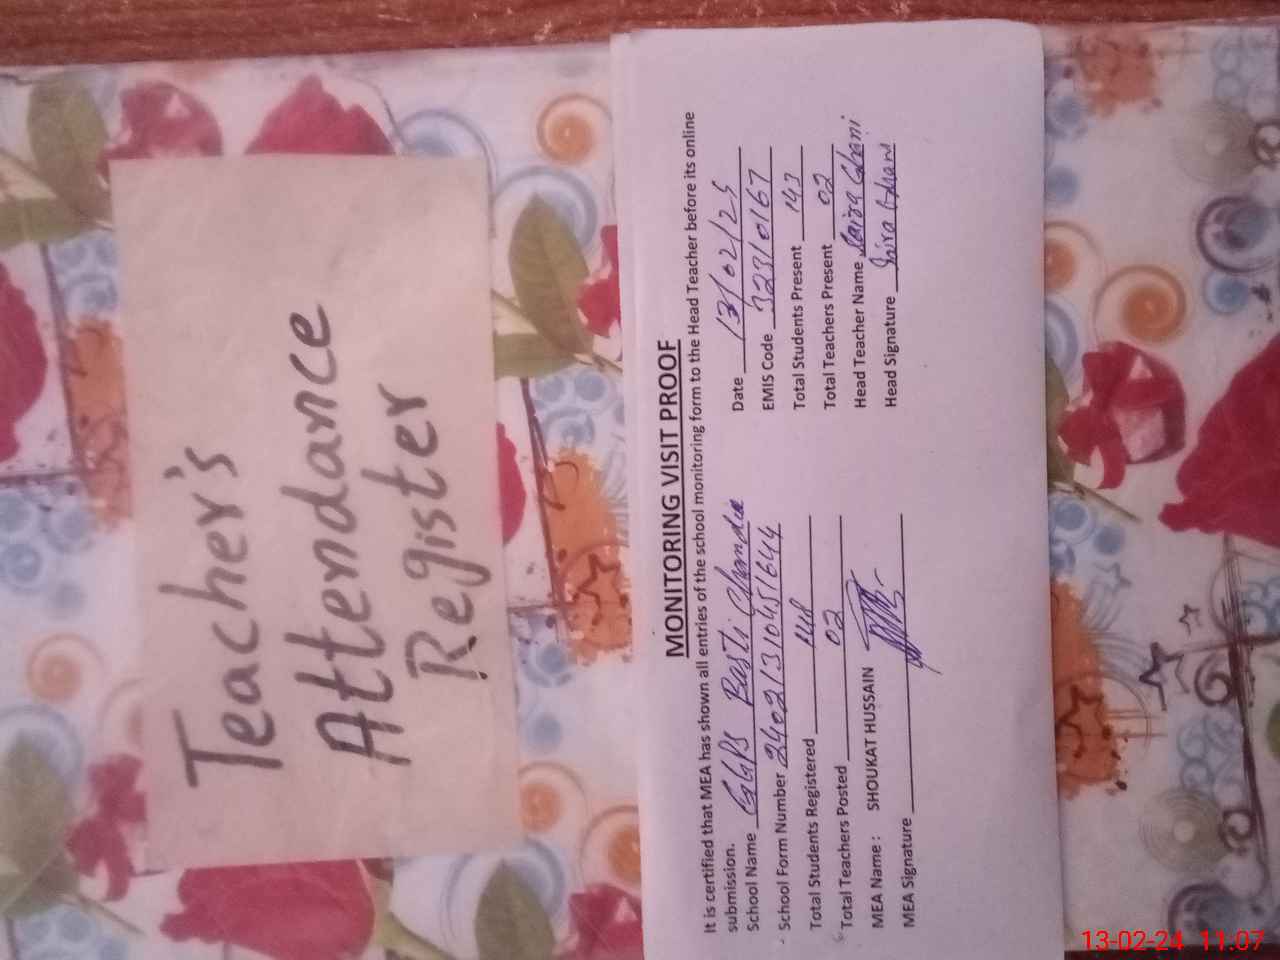 Teacher's
Attendance
Register
MONITORING VISIT PROOF
It is certified that MEA has shown all entries of the school monitoring form to the Head Teacher before its online
submission.
School Name GGPS Basti Chandia Date 13/02/25
School Form Number EMIS Code 32310167
Total Students Registered Total Students Present 143
Total Teachers Posted 02 Total Teachers Present 02
MEA Name : SHOUKAT HUSSAIN Head Teacher Name Saira Ghani
MEA Signature Head Signature Saira Ghani
13-02-24 11:07